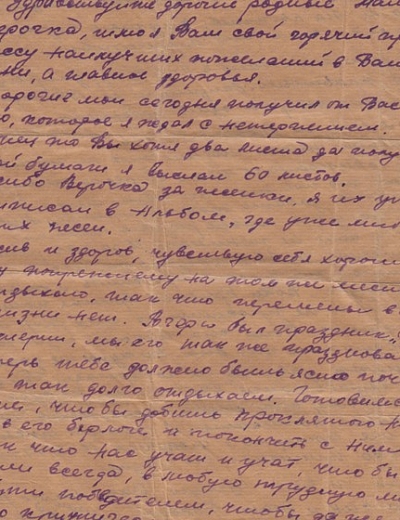 Здравствуйте дорогие родные мам
рочка, шлю я Вам свой горячий пр
ссу наилучших пожеланий в Ваш
ни, а главное здоровья.
орогие мои сегодня получил от Вас
о, которое я ждал с нетерпением.
что Вы хотя два листа да полу
ой бумаги я выслал 60 листов.
сибо Верочка за песенки, я их уж
писал в Альбом, где уже мно
их песен.
ив и здоров, чувствую себя хорошо
у прежнему на том же мес
дыхаю, так что перемены в
изни нет. Вчера был праздник
мы его так же празднова
перь тебе должно быть ясно поч
так долго отдыхаем. Готовимс
ем, чтобы добить проклятого
в его берлоге и покончить с ним
к что нас учат и учат, что бы
ли всегда, в любую трудную ми
победителем, чтобы